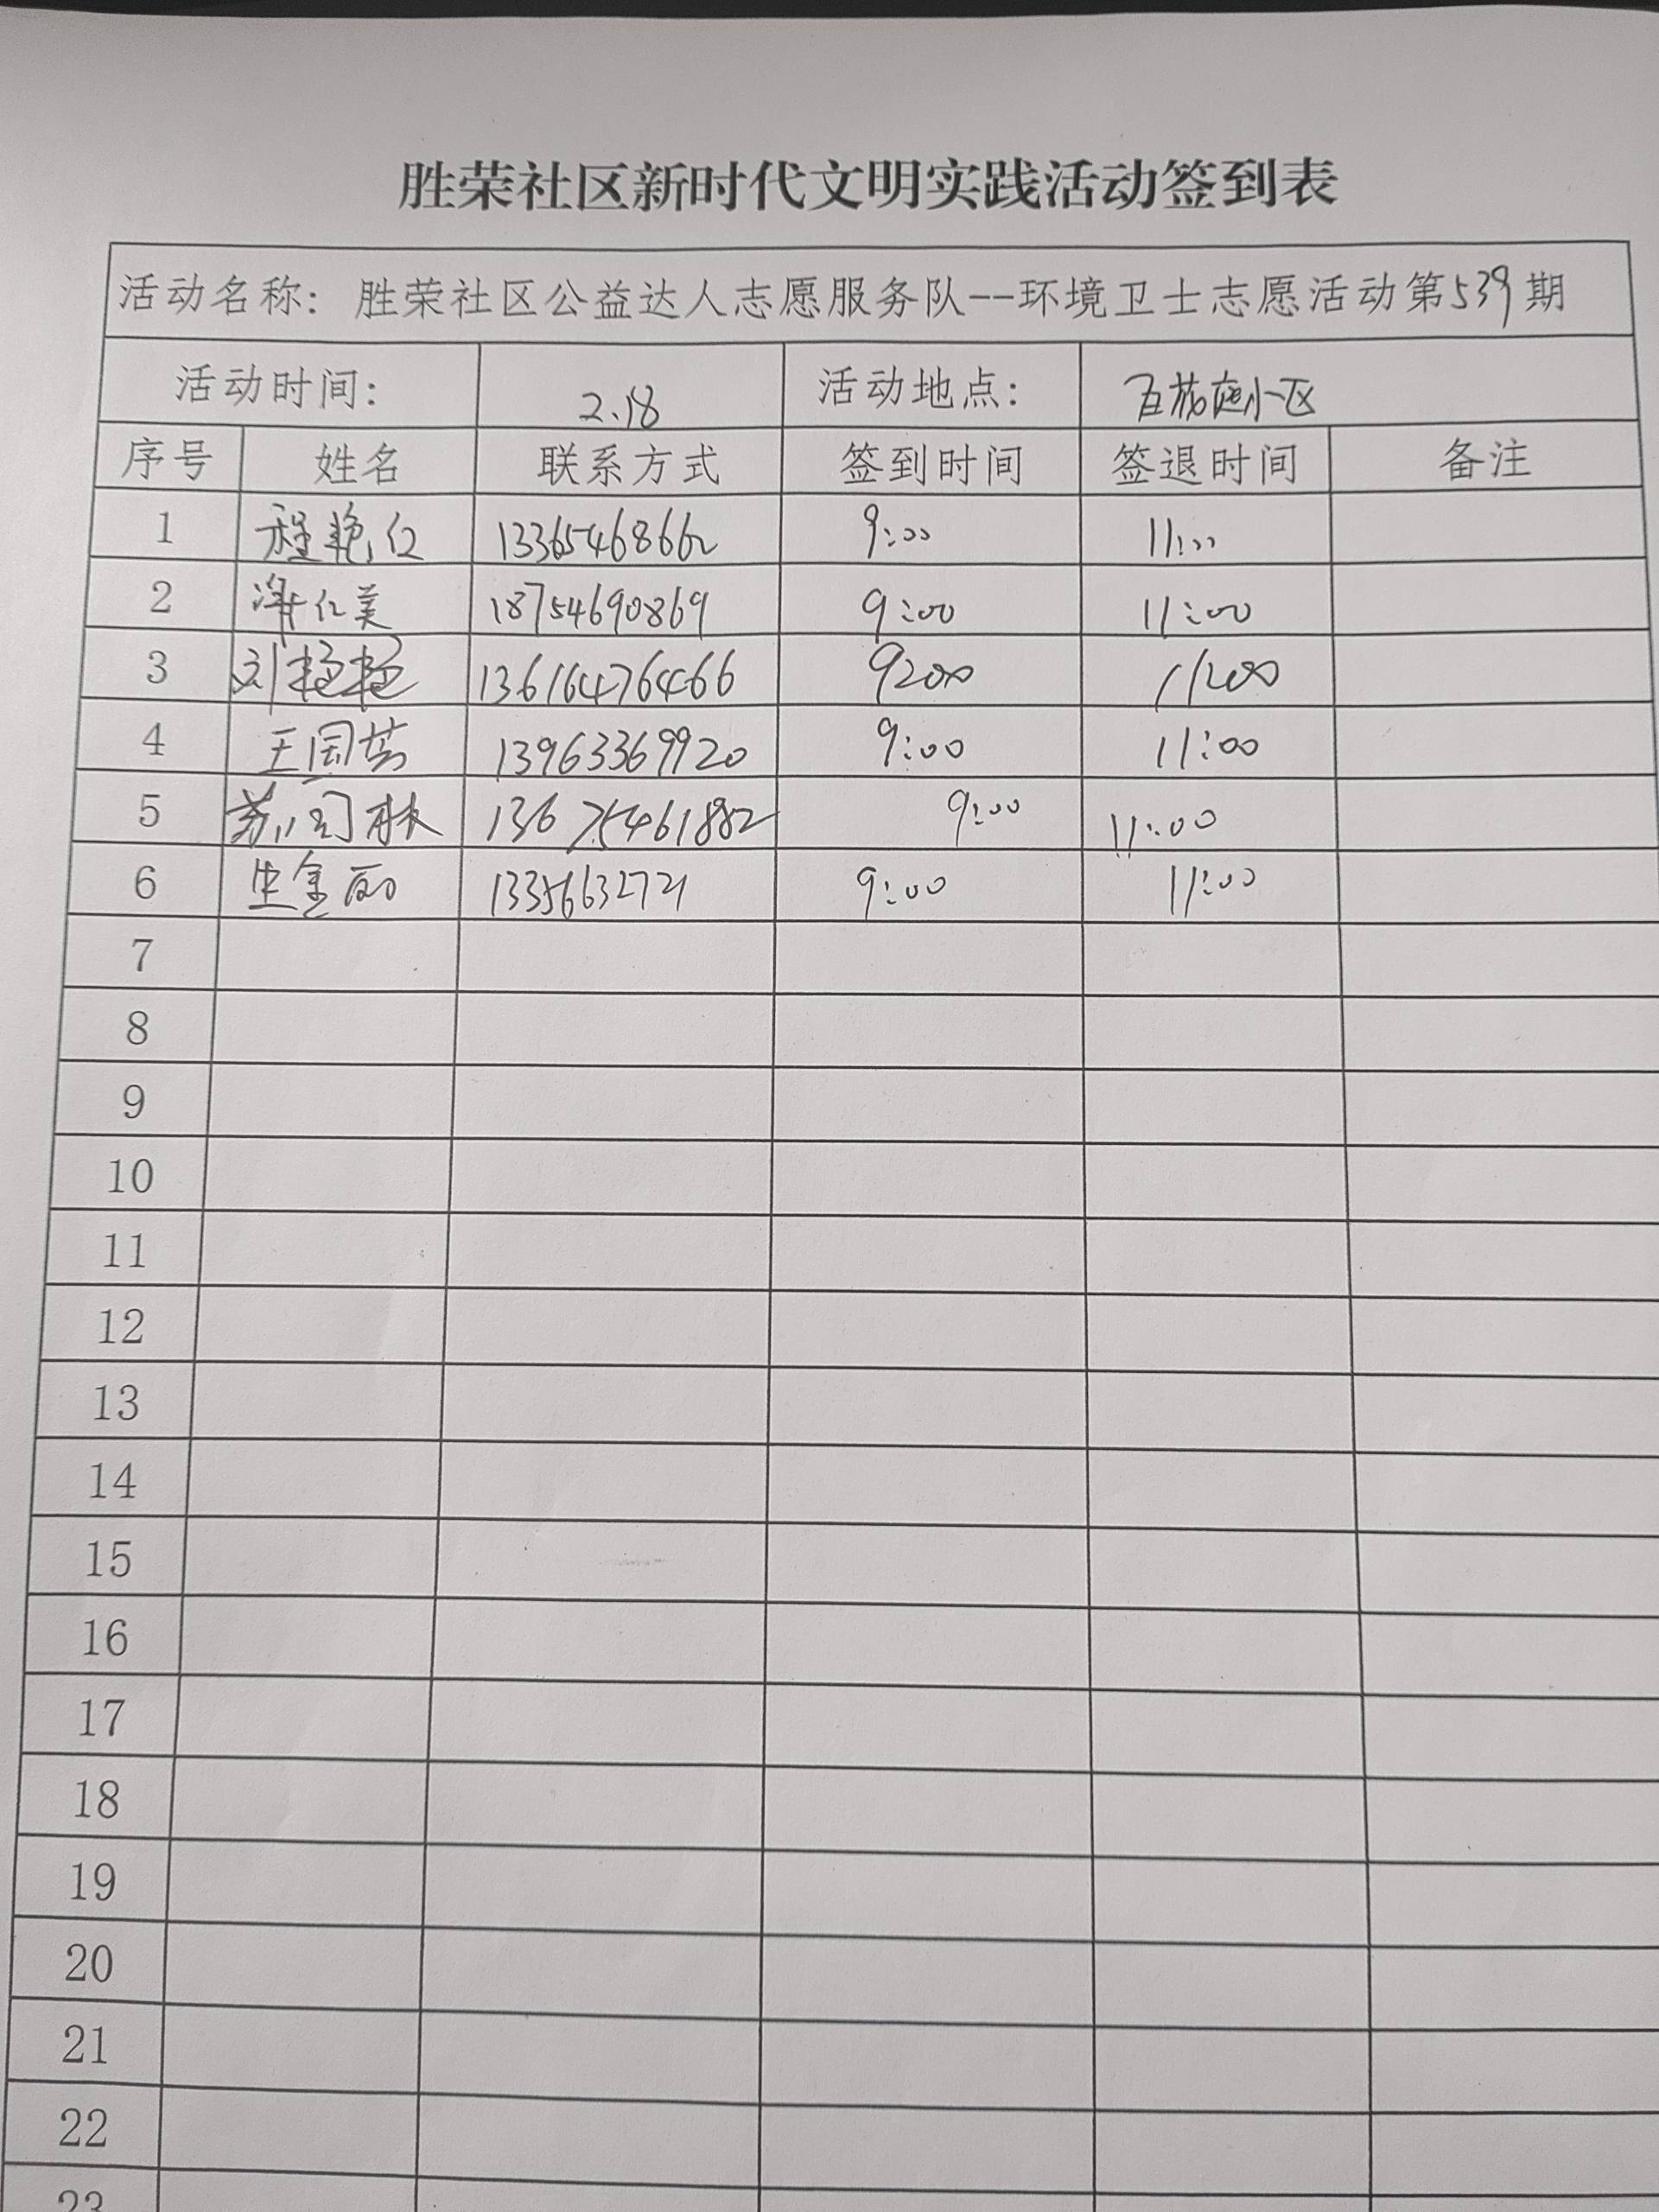 胜荣社区新时代文明实践活动签到表
活动名称：胜荣社区公益达人志愿服务队--环境卫士志愿活动第539期
活动时间： 2.18 活动地点： 小区
序号 姓名 联系方式 签到时间 签退时间 备注
1 13365468662 9:00 11:00
2 18754690869 9:00 11:00
3 刘艳艳 13616476466 9:00 11:00
4 王国芳 13963369920 9:00 11:00
5 13675461882 9:00 11:00
6 生金丽 9:00 11:00
7
8
9
10
11
12
13
14
15
16
17
18
19
20
21
22
23